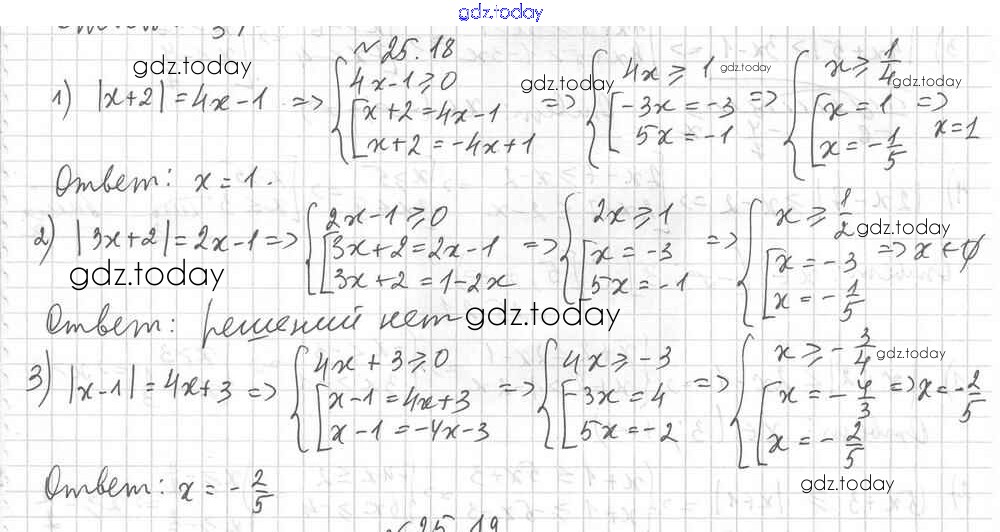 gdz.today
№25.18
1) |x+2| = 4x-1 => { 4x-1≥0 [ x+2=4x-1 x+2=-4x+1 => { 4x≥1 [ -3x=-3 5x=-1 => { x≥1/4 [ x=1 x=-1/5 => x=1
gdz.today gdz.today gdz.today gdz.today
Ответ: x=1.
2) |3x+2| = 2x-1 => { 2x-1≥0 [ 3x+2=2x-1 3x+2=1-2x => { 2x≥1 [ x=-3 5x=-1 => { x≥1/2 [ x=-3 x=-1/5 => x
gdz.today gdz.today
Ответ: решений нет
gdz.today
3) |x-1| = 4x+3 => { 4x+3≥0 [ x-1=4x+3 x-1=-4x-3 => { 4x≥-3 [ -3x=4 5x=-2 => { x≥-3/4 [ x=-4/3 x=-2/5 => x=-2/5
gdz.today
Ответ: x=-2/5
gdz.today
№25.19